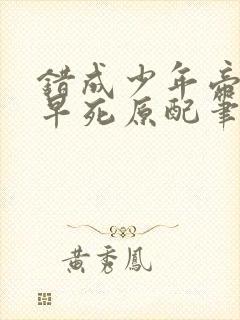 錯成少年帝
早死原配筆
黃秀鳳